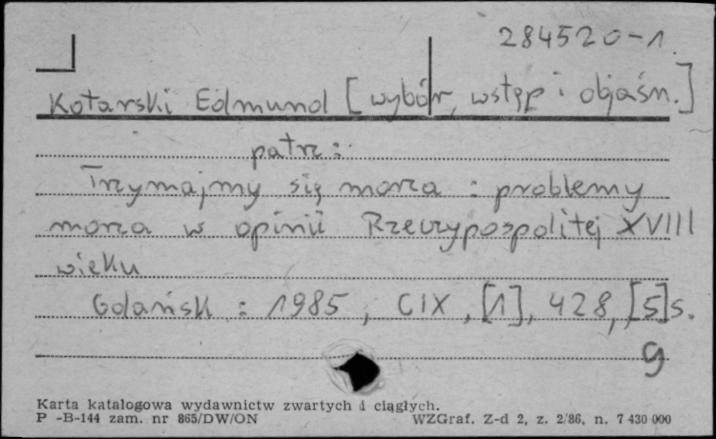 284520-1
Kotarski Edmund [wybór, wstęp i objaśn.]
patrz:
Trzymajmy się morza : problemy
morza w opinii Rzeczypospolitej XVIII
wieku
Gdańsk : 1985, CIX, [1], 428, [5]s.
g
Karta katalogowa wydawnictw zwartych i ciągłych.
P -B-144 zam. nr 865/DW/ON WZGraf. Z-d 2, z. 2/86, n. 7 430 000